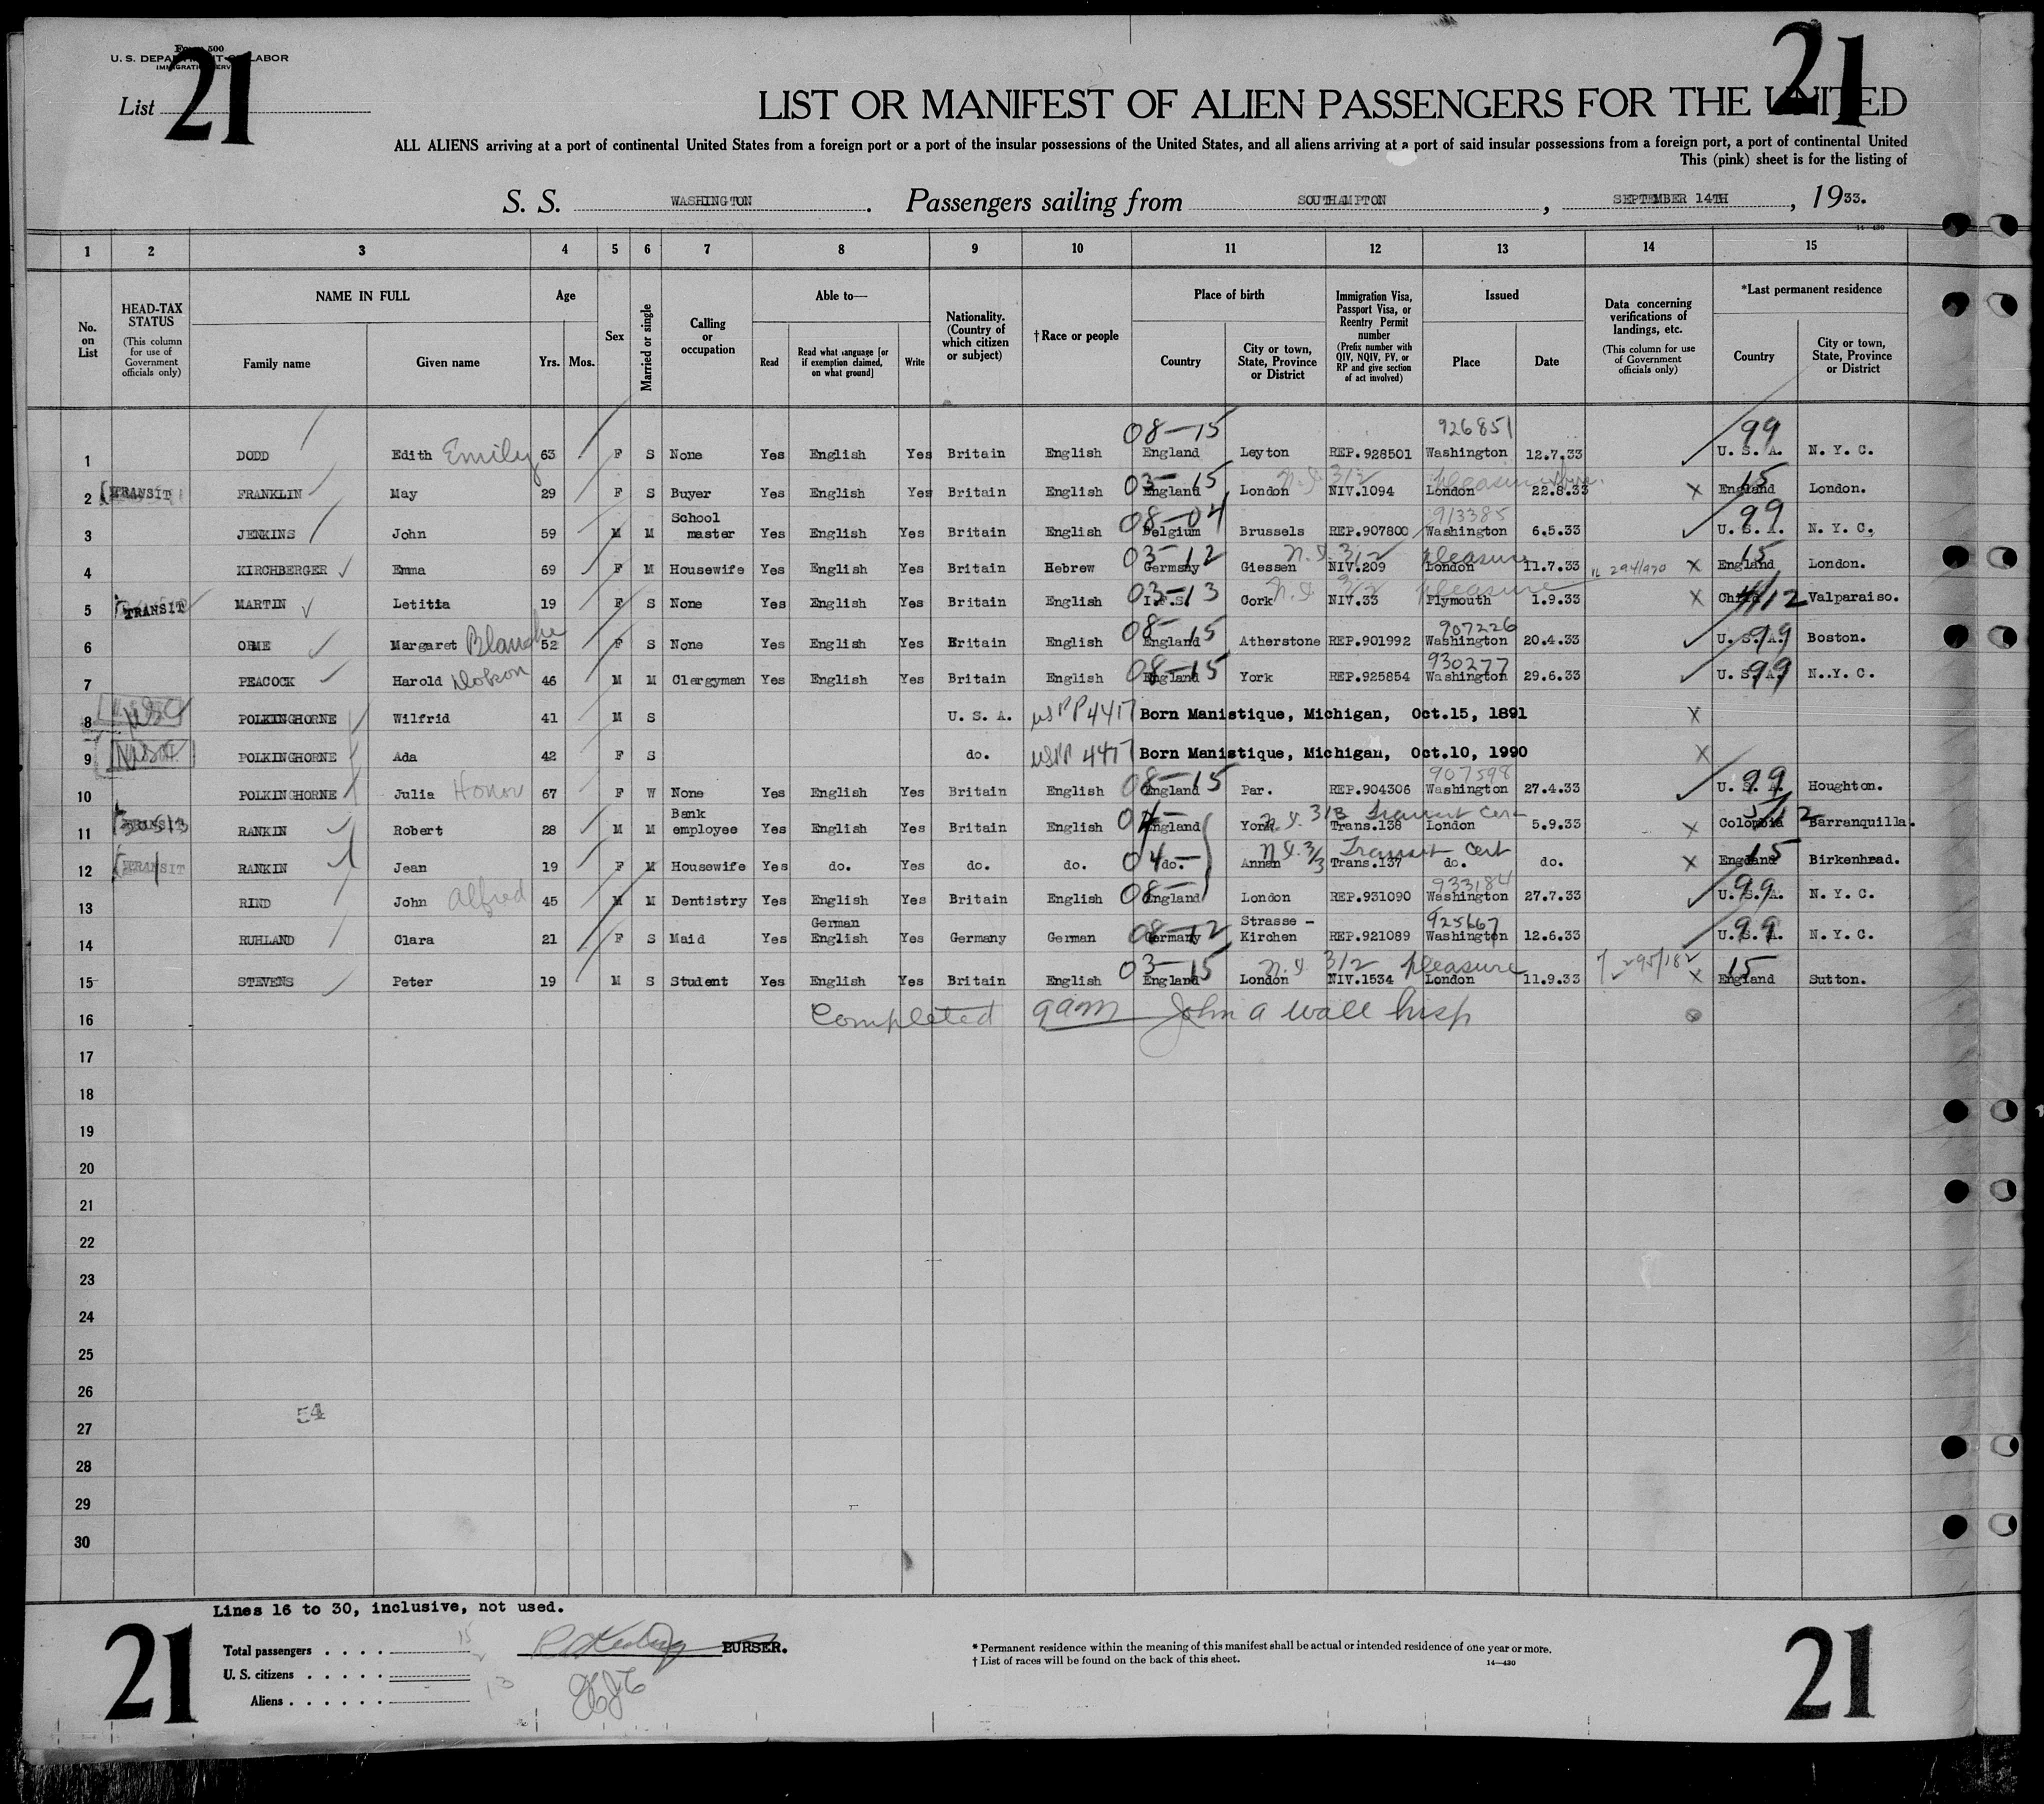 Form 500
U. S. DEPARTMENT OF LABOR
IMMIGRATION SERVICE
List 21
21
LIST OR MANIFEST OF ALIEN PASSENGERS FOR THE UNITED
ALL ALIENS arriving at a port of continental United States from a foreign port or a port of the insular possessions of the United States, and all aliens arriving at a port of said insular possessions from a foreign port, a port of continental United
This (pink) sheet is for the listing of
S. S. WASHINGTON. Passengers sailing from SOUTHAMPTON, SEPTEMBER 14TH, 1933.
14—430
1 2 3 4 5 6 7 8 9 10 11 12 13 14 15
No. on List
HEAD-TAX STATUS (This column for use of Government officials only)
NAME IN FULL
Family name
Given name
Age
Yrs. Mos.
Sex
Married or single
Calling or occupation
Able to—
Read
Read what language [or if exemption claimed, on what ground]
Write
Nationality. (Country of which citizen or subject)
† Race or people
Place of birth
Country
City or town, State, Province or District
Immigration Visa, Passport Visa, or Reentry Permit number (Prefix number with QIV, NQIV, PV, or RP and give section of act involved)
Issued
Place
Date
Data concerning verifications of landings, etc. (This column for use of Government officials only)
*Last permanent residence
Country
City or town, State, Province or District
08—15 926851 99
1 DODD Edith Emily 63 F S None Yes English Yes Britain English England Leyton REP.928501 Washington 12.7.33 U. S. A. N. Y. C.
03—15 N.I. 3/2 pleasure 15
2 TRANSIT FRANKLIN May 29 F S Buyer Yes English Yes Britain English England London NIV.1094 London 22.8.33 X England London.
08—04 913385 99
3 JENKINS John 59 M M School master Yes English Yes Britain English Belgium Brussels REP.907800 Washington 6.5.33 U. S. A. N. Y. C.
03—12 N.I. 3/2 pleasure 15
4 KIRCHBERGER Emma 69 F M Housewife Yes English Yes Britain Hebrew Germany Giessen NIV.209 London 11.7.33 294/970 X England London.
03—13 N.I. 3/2 pleasure 4/12
5 TRANSIT MARTIN Letitia 19 F S None Yes English Yes Britain English I.F.S. Cork NIV.33 Plymouth 1.9.33 X Chile Valparaiso.
08—15 907226 99
6 ORME Margaret Blanche 52 F S None Yes English Yes Britain English England Atherstone REP.901992 Washington 20.4.33 U. S. A. Boston.
08—15 930277 99
7 PEACOCK Harold Dobson 46 M M Clergyman Yes English Yes Britain English England York REP.925854 Washington 29.6.33 U. S. A. N..Y. C.
8 USC POLKINGHORNE Wilfrid 41 M S U. S. A. USPP 4417 Born Manistique, Michigan, Oct.15, 1891 X
9 POLKINGHORNE Ada 42 F S do. USPP 4417 Born Manistique, Michigan, Oct.10, 1990 X
08—15 907598 99
10 POLKINGHORNE Julia Honor 67 F W None Yes English Yes Britain English England Par. REP.904306 Washington 27.4.33 U. S. A. Houghton.
04— N.I. 3/3 Transit Cert 5/12
11 TRANSIT RANKIN Robert 28 M M Bank employee Yes English Yes Britain English England York Trans.136 London 5.9.33 X Colombia Barranquilla.
04— N.I. 3/3 Transit Cert 15
12 TRANSIT RANKIN Jean 19 F M Housewife Yes do. Yes do. do. do. Annan Trans.137 do. do. X England Birkenhead.
08— 933184 99
13 RIND John Alfred 45 M M Dentistry Yes English Yes Britain English England London REP.931090 Washington 27.7.33 U. S. A. N. Y. C.
08—12 925667 99
14 RUHLAND Clara 21 F S Maid Yes German English Yes Germany German Germany Strasse - Kirchen REP.921089 Washington 12.6.33 U. S. A. N. Y. C.
03—15 N.I. 3/2 pleasure 295/182 15
15 STEVENS Peter 19 M S Student Yes English Yes Britain English England London NIV.1534 London 11.9.33 X England Sutton.
16 Completed 9am John A Wall Insp
17
18
19
20
21
22
23
24
25
26
27 54
28
29
30
Lines 16 to 30, inclusive, not used.
21
Total passengers . . . . 15
U. S. citizens . . . . . 2
Aliens . . . . . . 13
PURSER.
* Permanent residence within the meaning of this manifest shall be actual or intended residence of one year or more.
† List of races will be found on the back of this sheet.
14—430
21